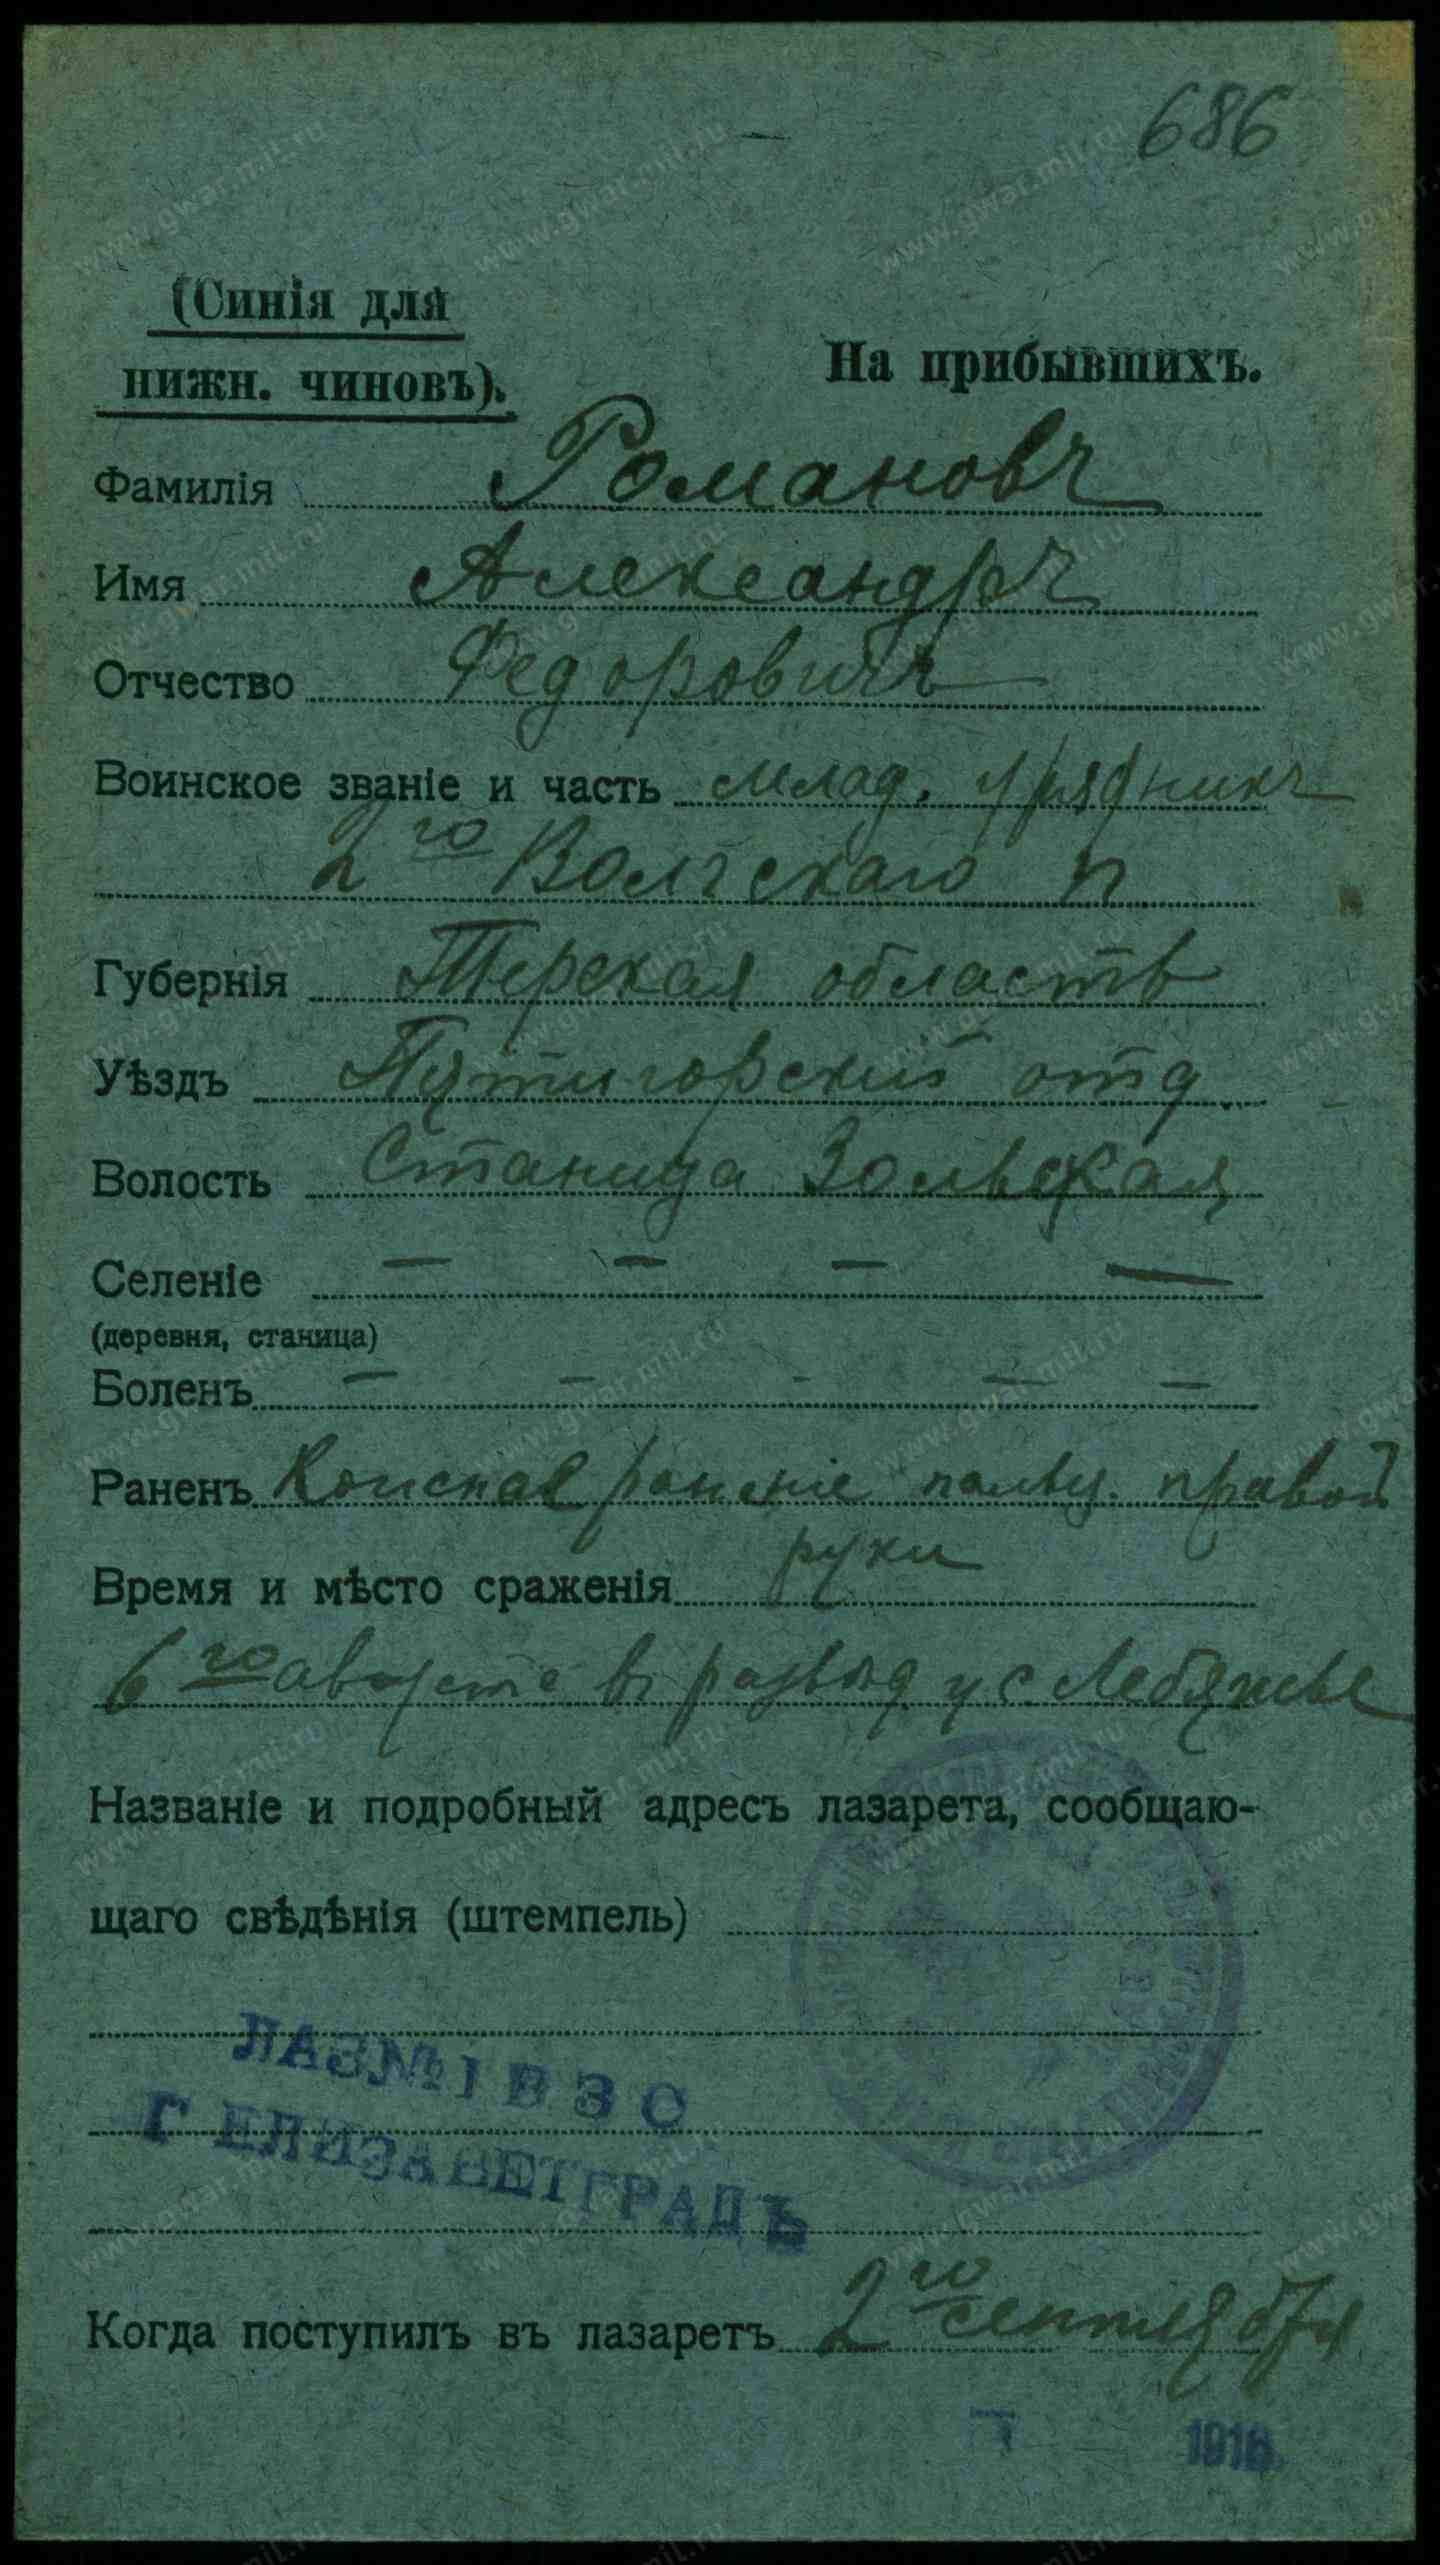 686
(Синія для
нижн. чиновъ).
На прибывшихъ.
Фамилія Романовъ
Имя Александръ
Отчество Федоровичъ
Воинское званіе и часть млад. урядникъ
2го Волгскаго п
Губернія Терская область
Уѣздъ Пятигорский отд.
Волость Станица Зольская
Селеніе — — — —
(деревня, станица)
Боленъ — — — — —
Раненъ раненіе пальц. правой
руки
Время и мѣсто сраженія
6го августа в развѣд у с Лебяжье
Названіе и подробный адресъ лазарета, сообщаю-
щаго свѣдѣнія (штемпель)
ЛАЗ№1 ВЗО
Г ЕЛИЗАВЕТГРАДЪ
Когда поступилъ въ лазаретъ 2го сентября
1916
www.gwar.mil.ru